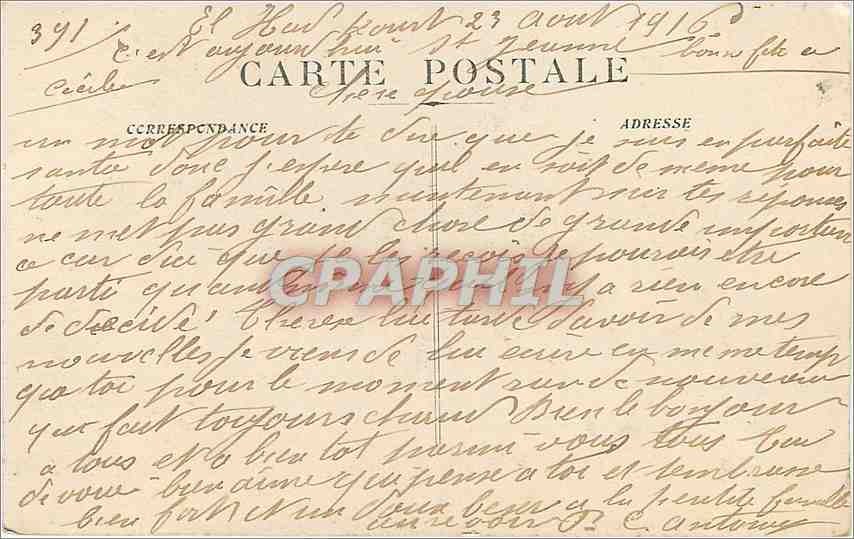 391 El Had Kourt 23 Aout 1916
C'est aujourd'hui St Jeanne bonne fete a
Cecile
CARTE POSTALE
Chere epouse
CORRESPONDANCE ADRESSE
un mot pour te dire que je suis en parfaite
santee donc j'espere quil en soit de meme pour
toute la famille maintenant sur tes reponses
ne met pas grand chose de grande importan
ce car dici que tu la recoive je pourais etre
parti quand meme quil n'y a rien encore
de decide! Therese lui tarde davoir de mes
nouvelles je viens de lui ecrire en meme temp
qua toi pour le moment rien de nouveau
qui fait toujours chaud Bien le bonjour
a tous et a bientot parmi vous tous ton
devoue bien aime qui pense a toi et tembrasse
bien fort et un doux baiser a la petite famille
au revoir C. Antony
CPAPHIL